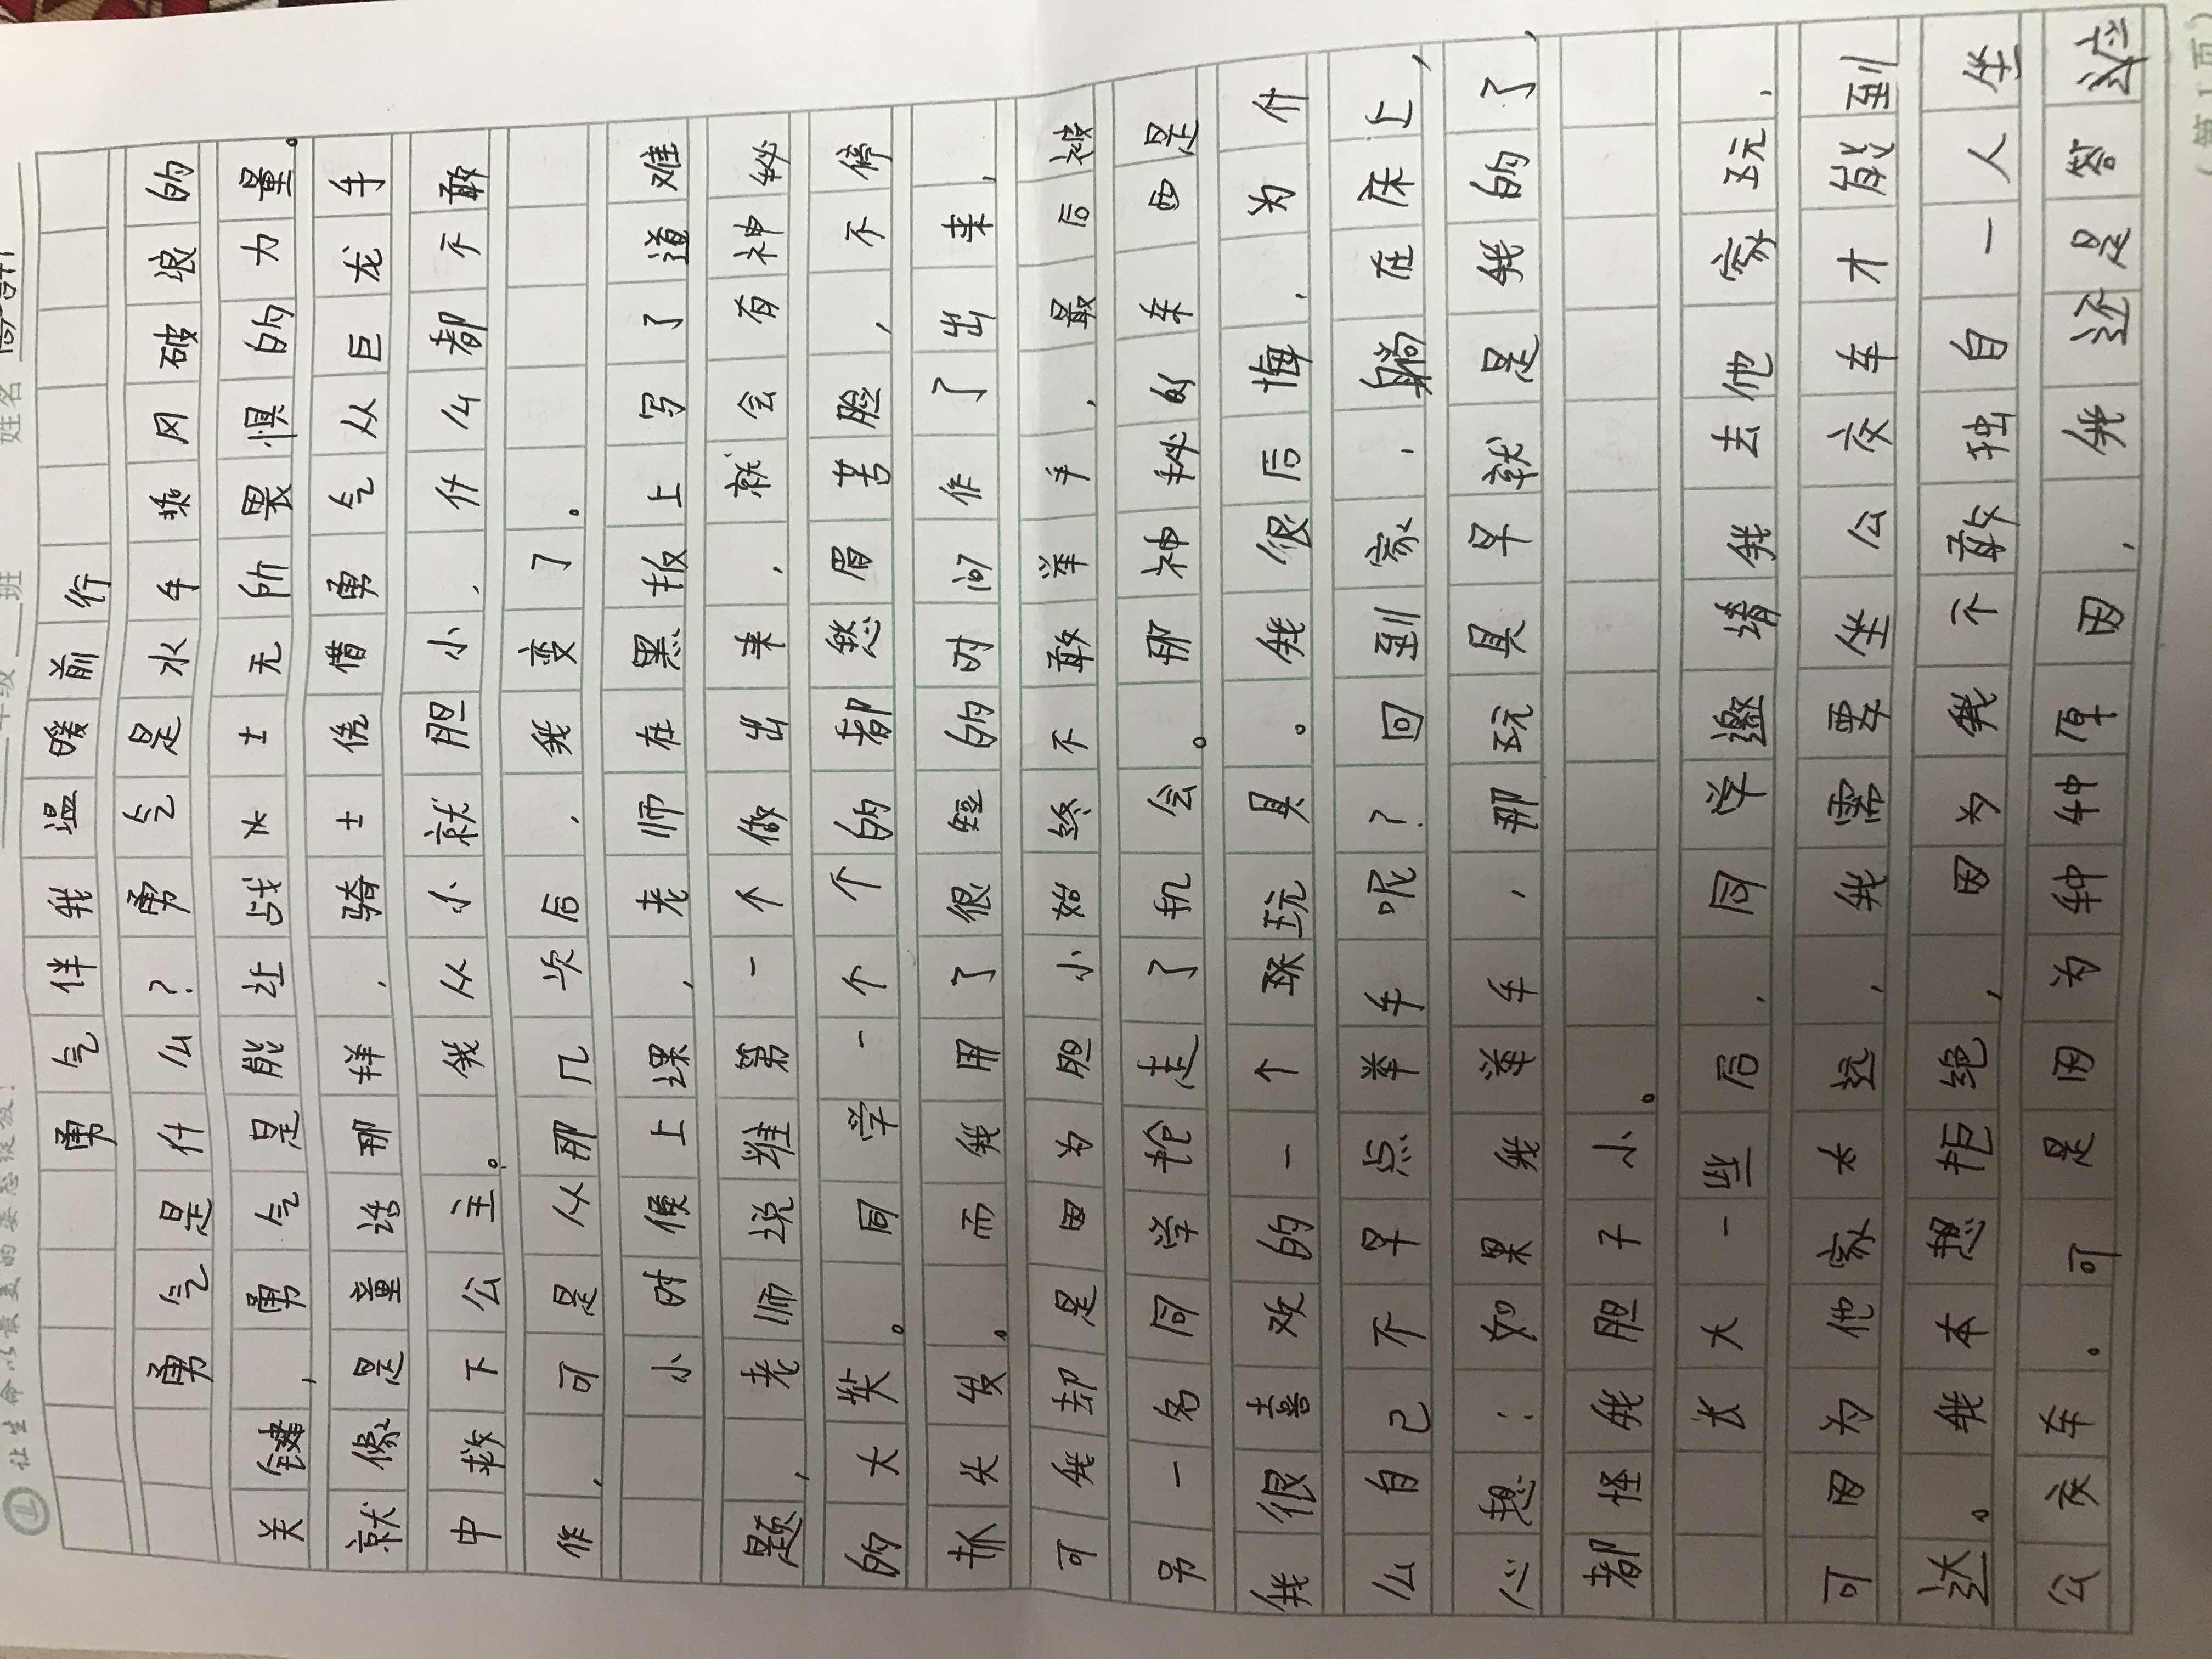 让生命以最美的姿态绽放!
年级 班 姓名
勇气伴我温暖前行
勇气是什么?勇气是水手乘风破浪的
关键,勇气是能让战士无所畏惧的力量。
就像是童话那样,骑士凭借勇气从巨龙手
中救下公主。我从小就胆小,什么都不敢
作,可是从那几次后,我变了。
小时候上课,老师在黑板上写了道难
题,老师说谁第一个做出来,就会有神秘
的大奖。同学一个个的都愁眉苦脸,不停
抓头发。而我用了很短的时间作了出来,
可我却是因为胆小始终不敢举手,最后被
另一名同学抢走了机会。那神秘的东西是
我很喜欢的一个球玩具。我很后悔,为什
么自己不早点举手呢?回到家,躺在床上,
心想:如果我举手,那玩具早就是我的了,
都怪我胆子小。
长大一些后,同学邀请我去他家玩,
可因为他家太远,我需要坐公交车才能到
达。我本想拒绝,因为我不敢独自一人坐
公交车。可是因为种种原因,我还是答应
(第1页)